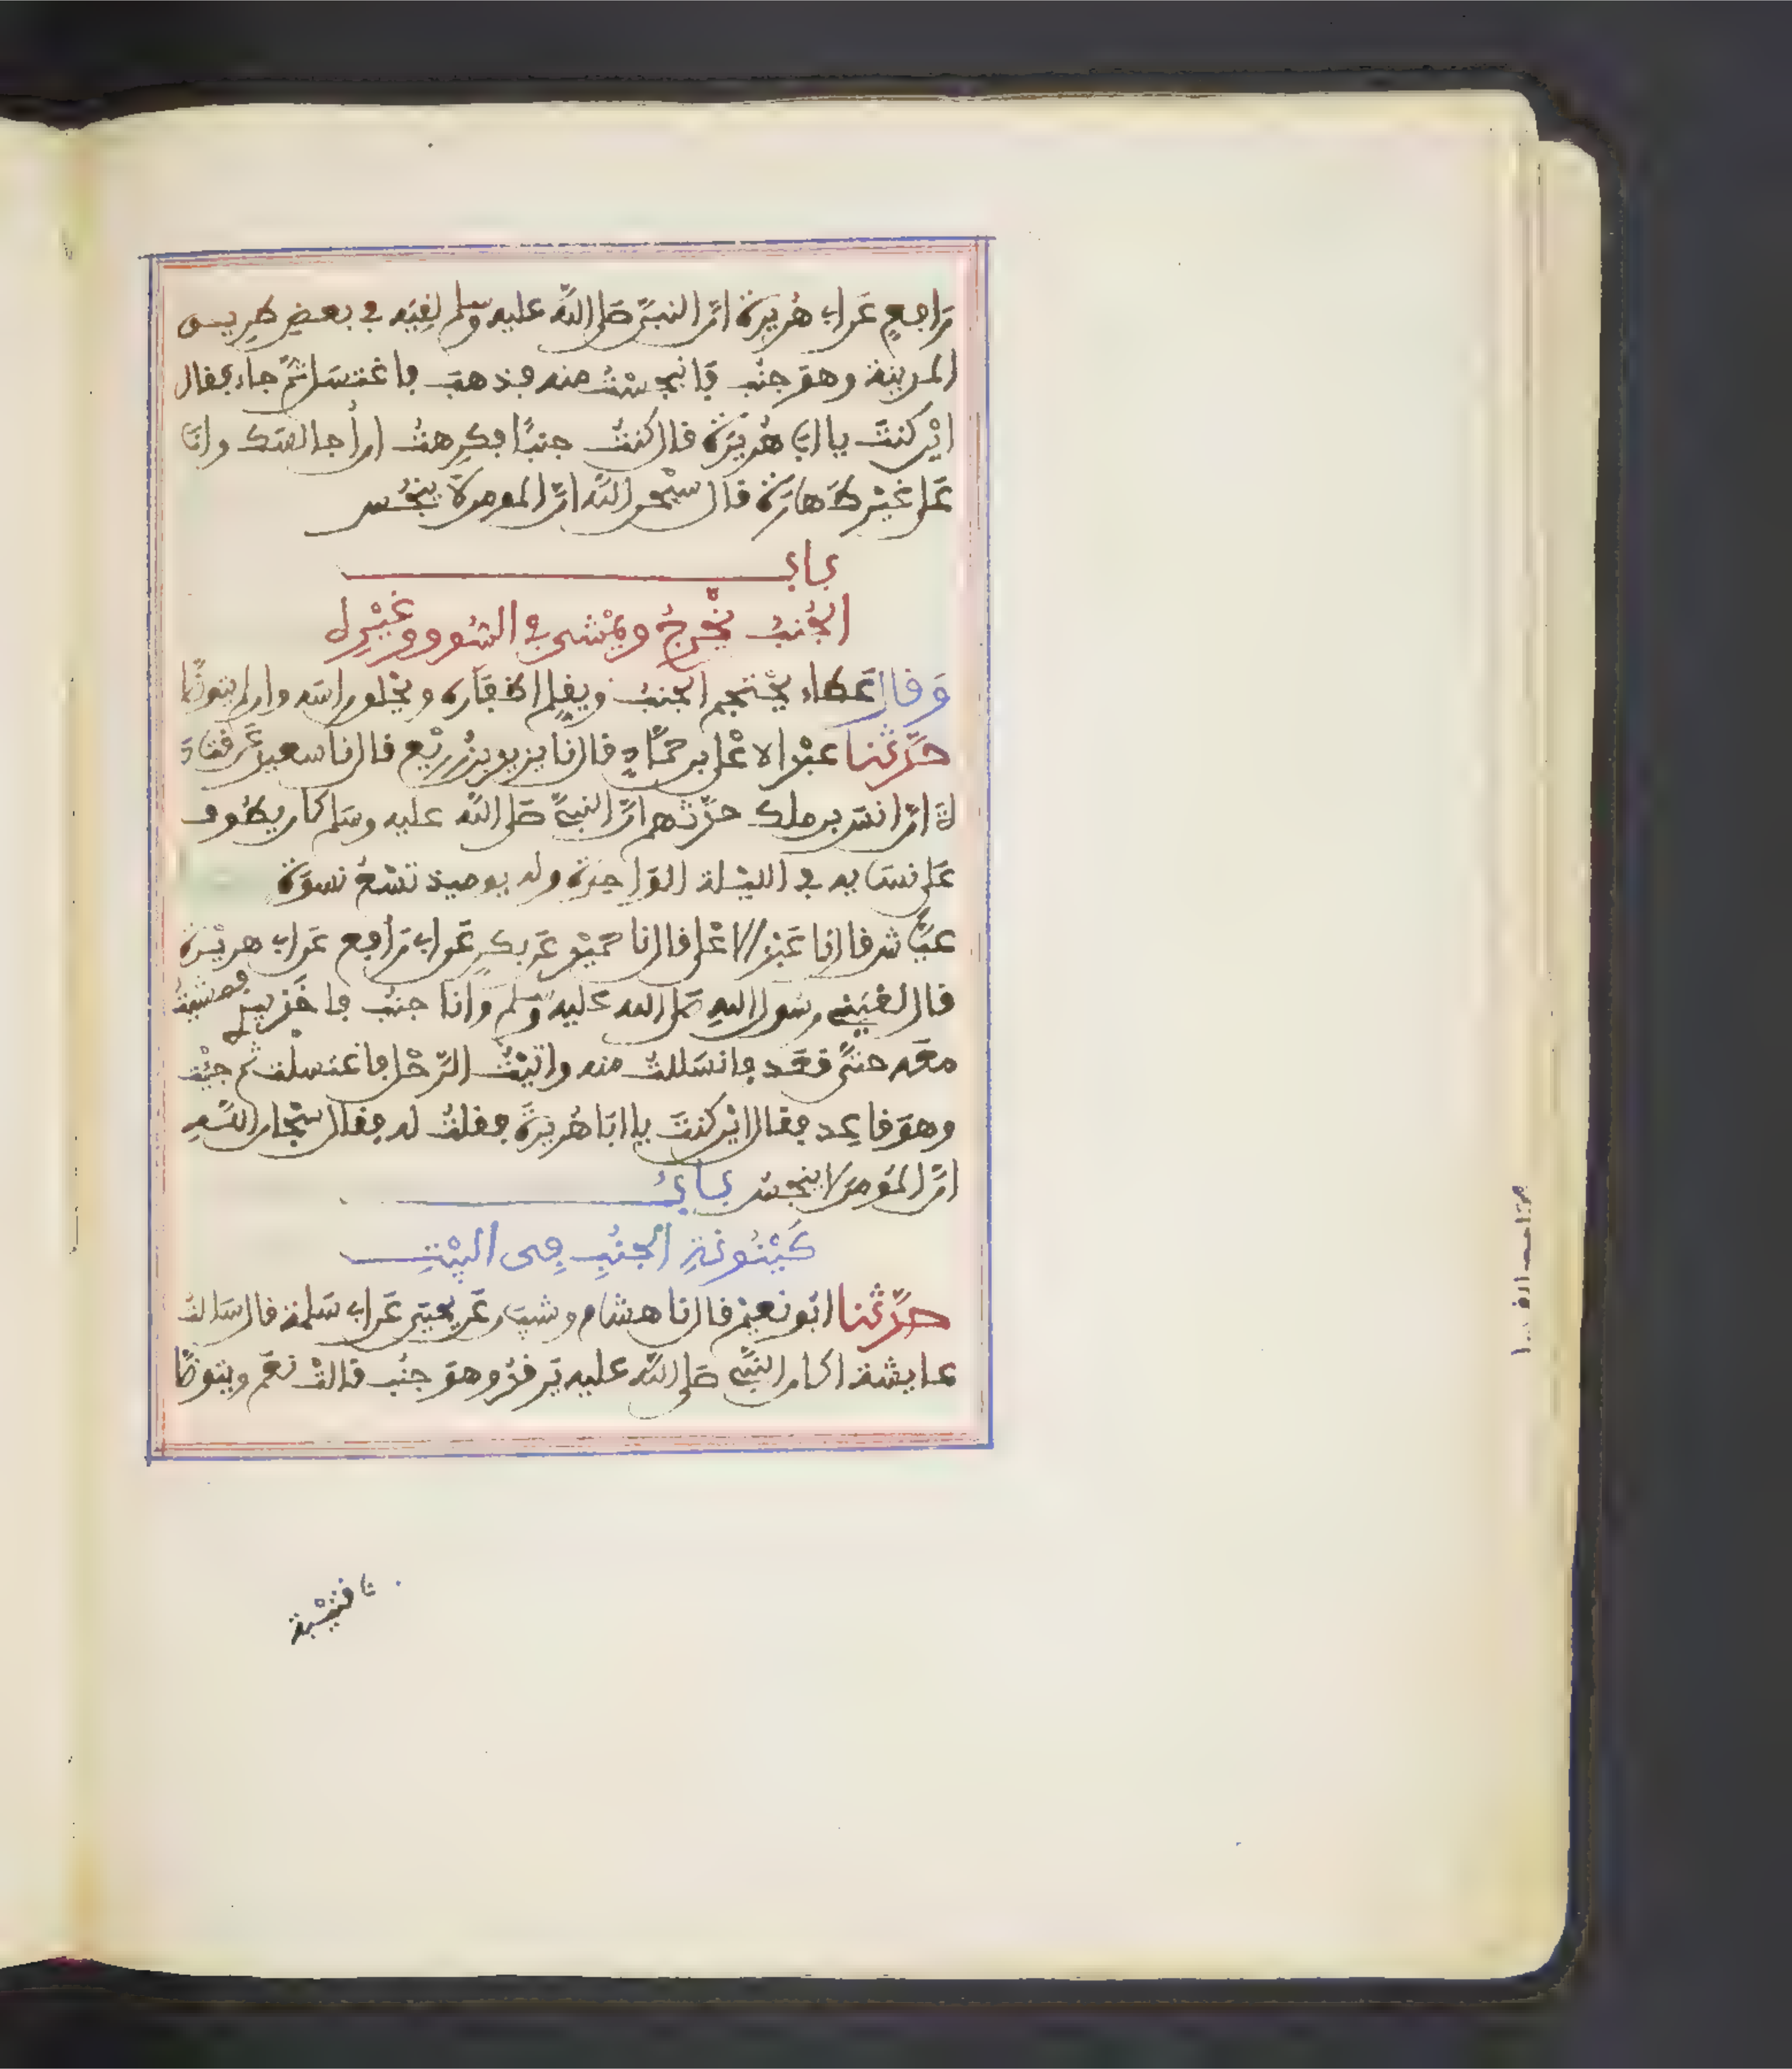 رافع عن ابي هريرة ان النبي صلى الله عليه وسلم لقيه في بعض طريق
المدينة وهو جنب فانبجست منه فذهب فاغتسل ثم جاء فقال
اين كنت يا ابي هريرة قال كنت جنبا فكرهت ان أجالسك وانا
على غير طهارة قال سبحن الله ان المومن لا ينجس
باب
الجنب يخرج ويمشي في السوق وغيره
وقال عطاء يحتجم الجنب ويقلم اظفاره ويحلق راسه وان لم يتوضأ
حدثنا عبد الاعلى بن حماد قال نا يزيد بن زريع قال نا سعيد عن قتادة
ان انس بن ملك حدثهم ان النبي صلى الله عليه وسلم كان يطوف
على نسايه في الليلة الواحدة وله يوميذ تسع نسوة
عياش قال نا عبد الاعلى قال نا حميد عن بكر عن ابي رافع عن ابي هريرة
قال لقيني رسول الله صلى الله عليه وسلم وانا جنب فاخذ بيدي فمشيت
معه حتى قعد فانسللت منه واتيت الرحل فاغتسلت ثم جيت
وهو قاعد فقال اين كنت يا ابا هريرة فقلت له فقال سبحان الله
ان المومن لا ينجس باب
كينونة الجنب في البيت
حدثنا ابو نعيم قال نا هشام وشيبان عن يحيى عن ابي سلمة قال سالت
عايشة اكان النبي صلى الله عليه يرقد وهو جنب قالت نعم ويتوضأ
نا قتيبة